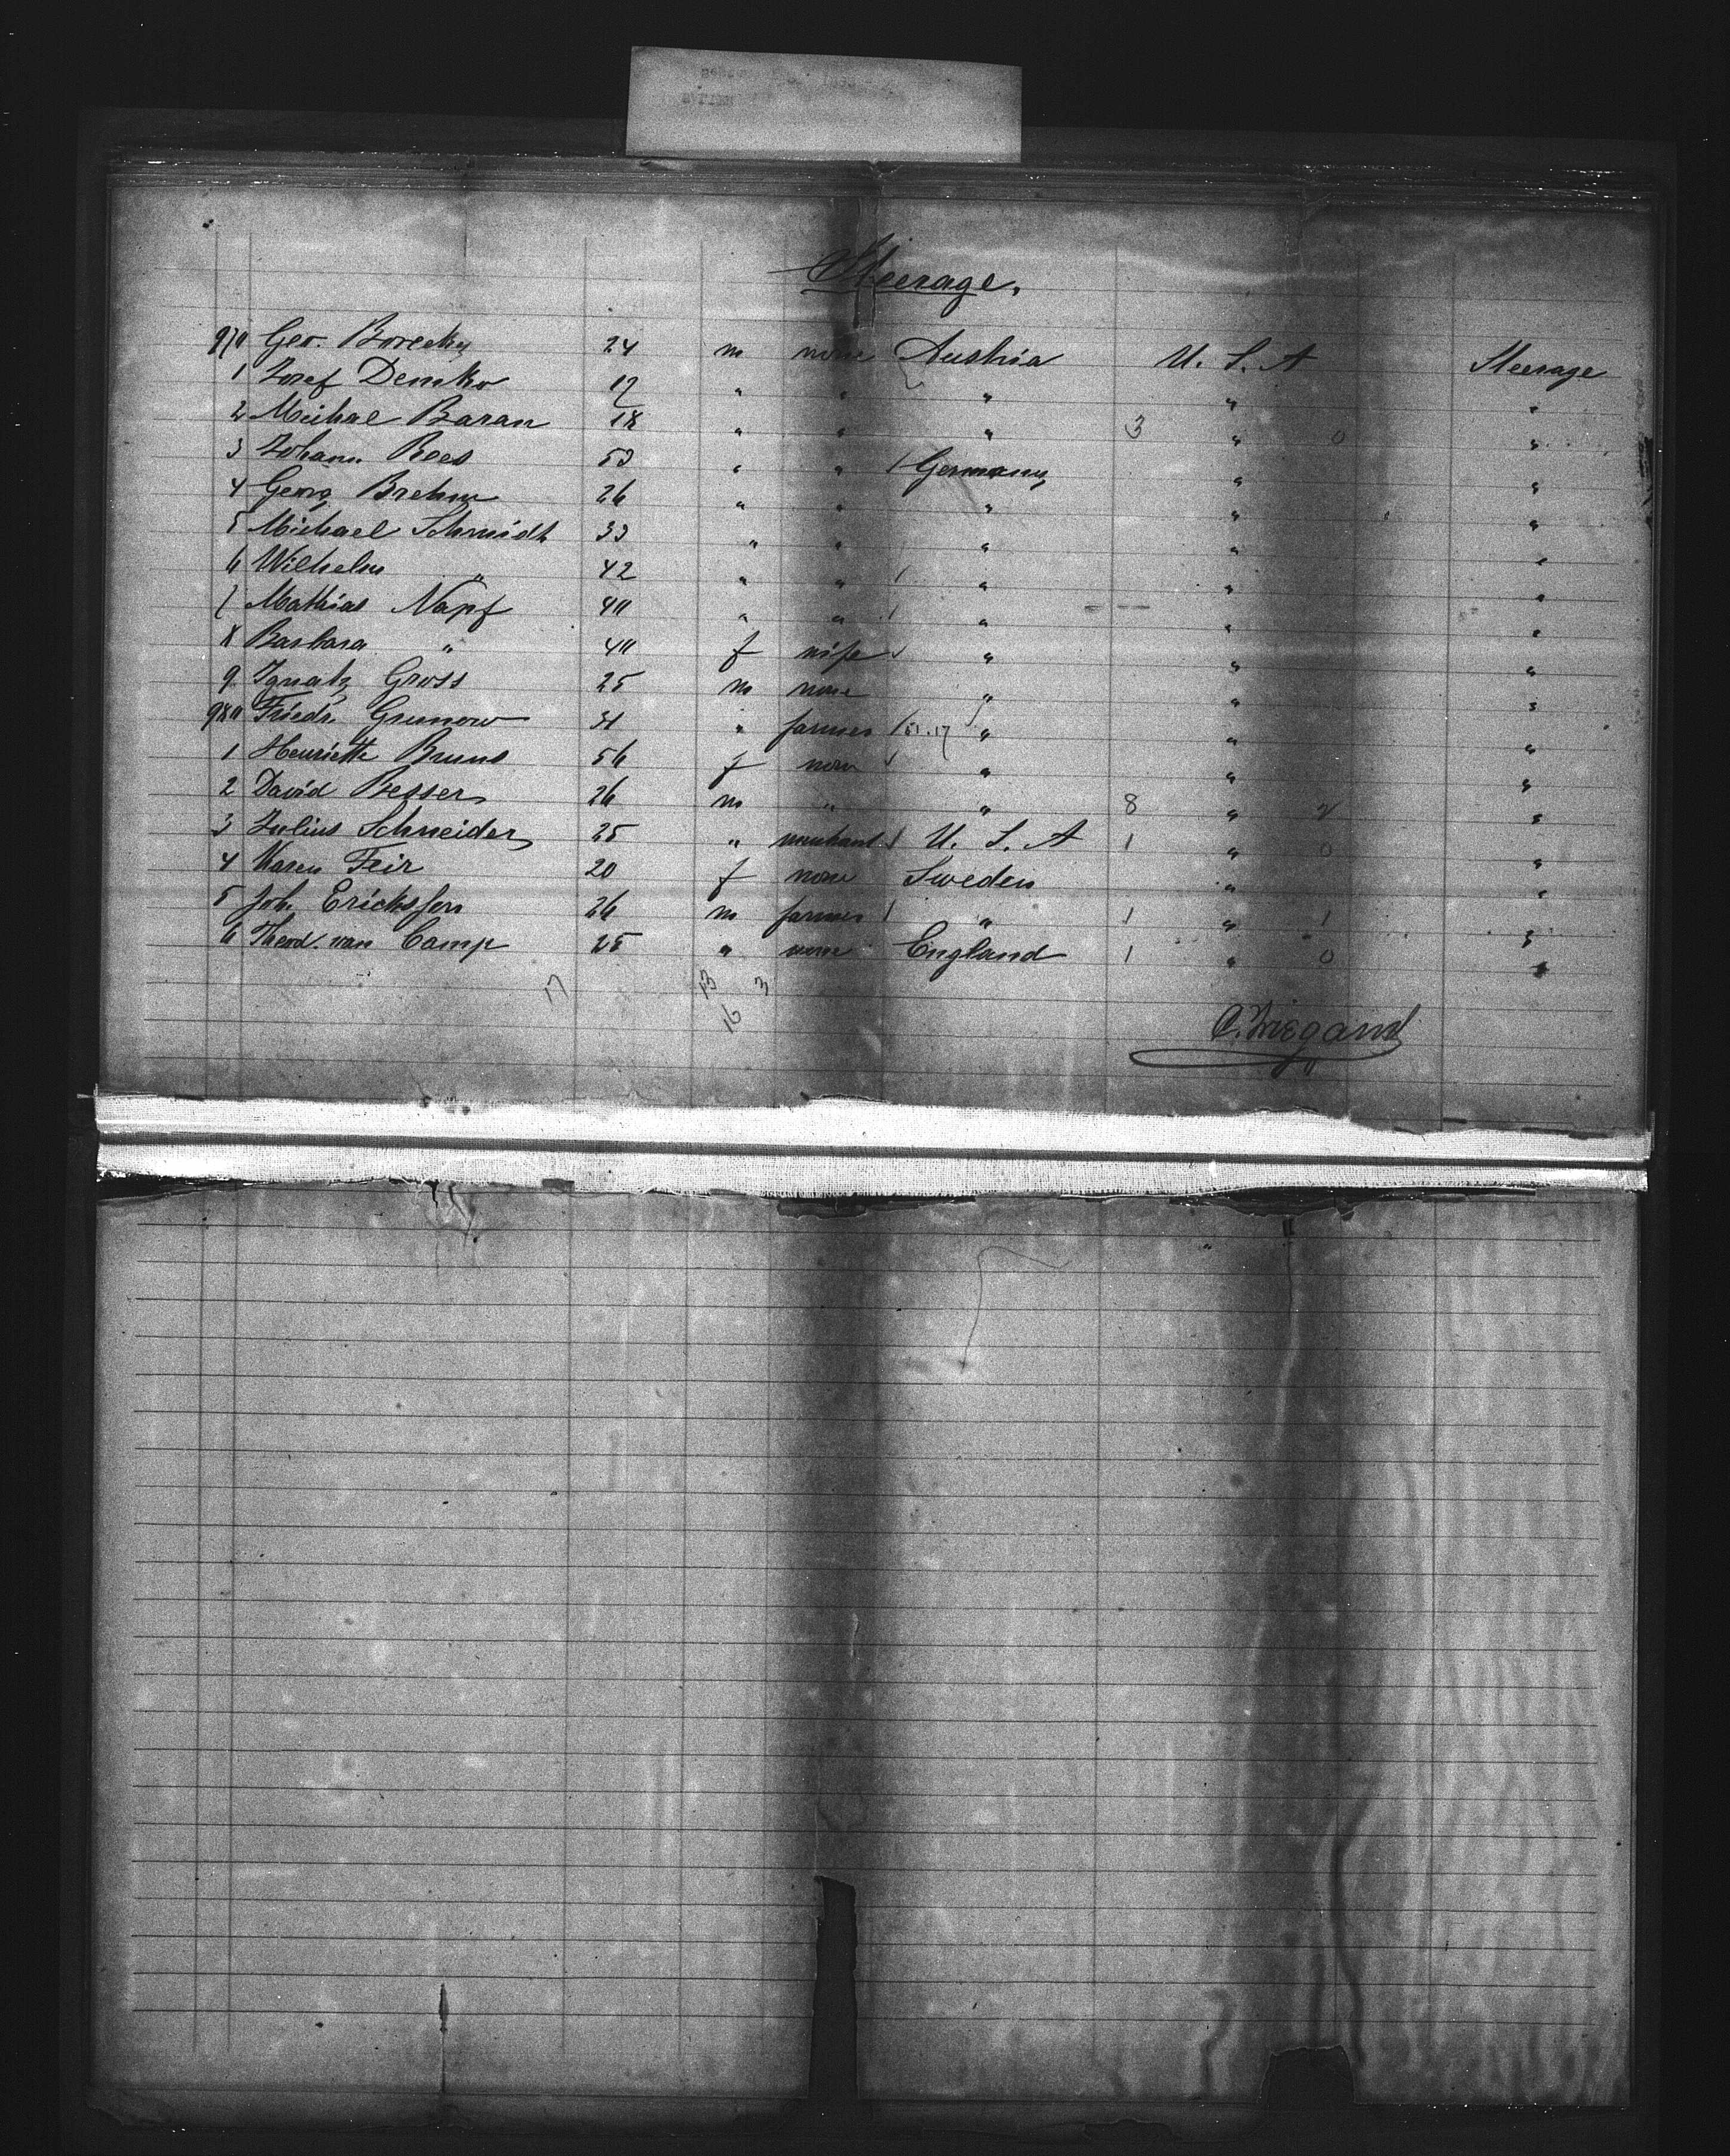 Steerage.
970 Geo. Borecky 24 m none Austria U. S. A Steerage
1 Josef Demko 17 " " " " "
2 Michae Baran 18 " " " 3 " 0 "
3 Johann Rees 53 " " / Germany " "
4 Georg Brehm 26 " " " " "
5 Michael Schmidt 33 " " " " "
6 Wilhelm " 42 " " / " " "
7 Mathias Napf 40 " " / " " "
8 Barbara " 40 f wife " " "
9 Ignatz Gross 25 m none " " "
980 Friedr. Grunow 31 " farmer / " " "
1 Henriette Bruns 56 f none " " "
2 David Besser 26 m " " 8 " 2 "
3 Julius Schneider 25 " merchant U. S. A 1 " 0 "
4 Karen Feir 20 f none Sweden " "
5 Joh. Ericksson 26 m farmer / " 1 " 1 "
6 Theod. van Camp 25 " none England 1 " 0 "
17 13 3
16
C. Wiegand